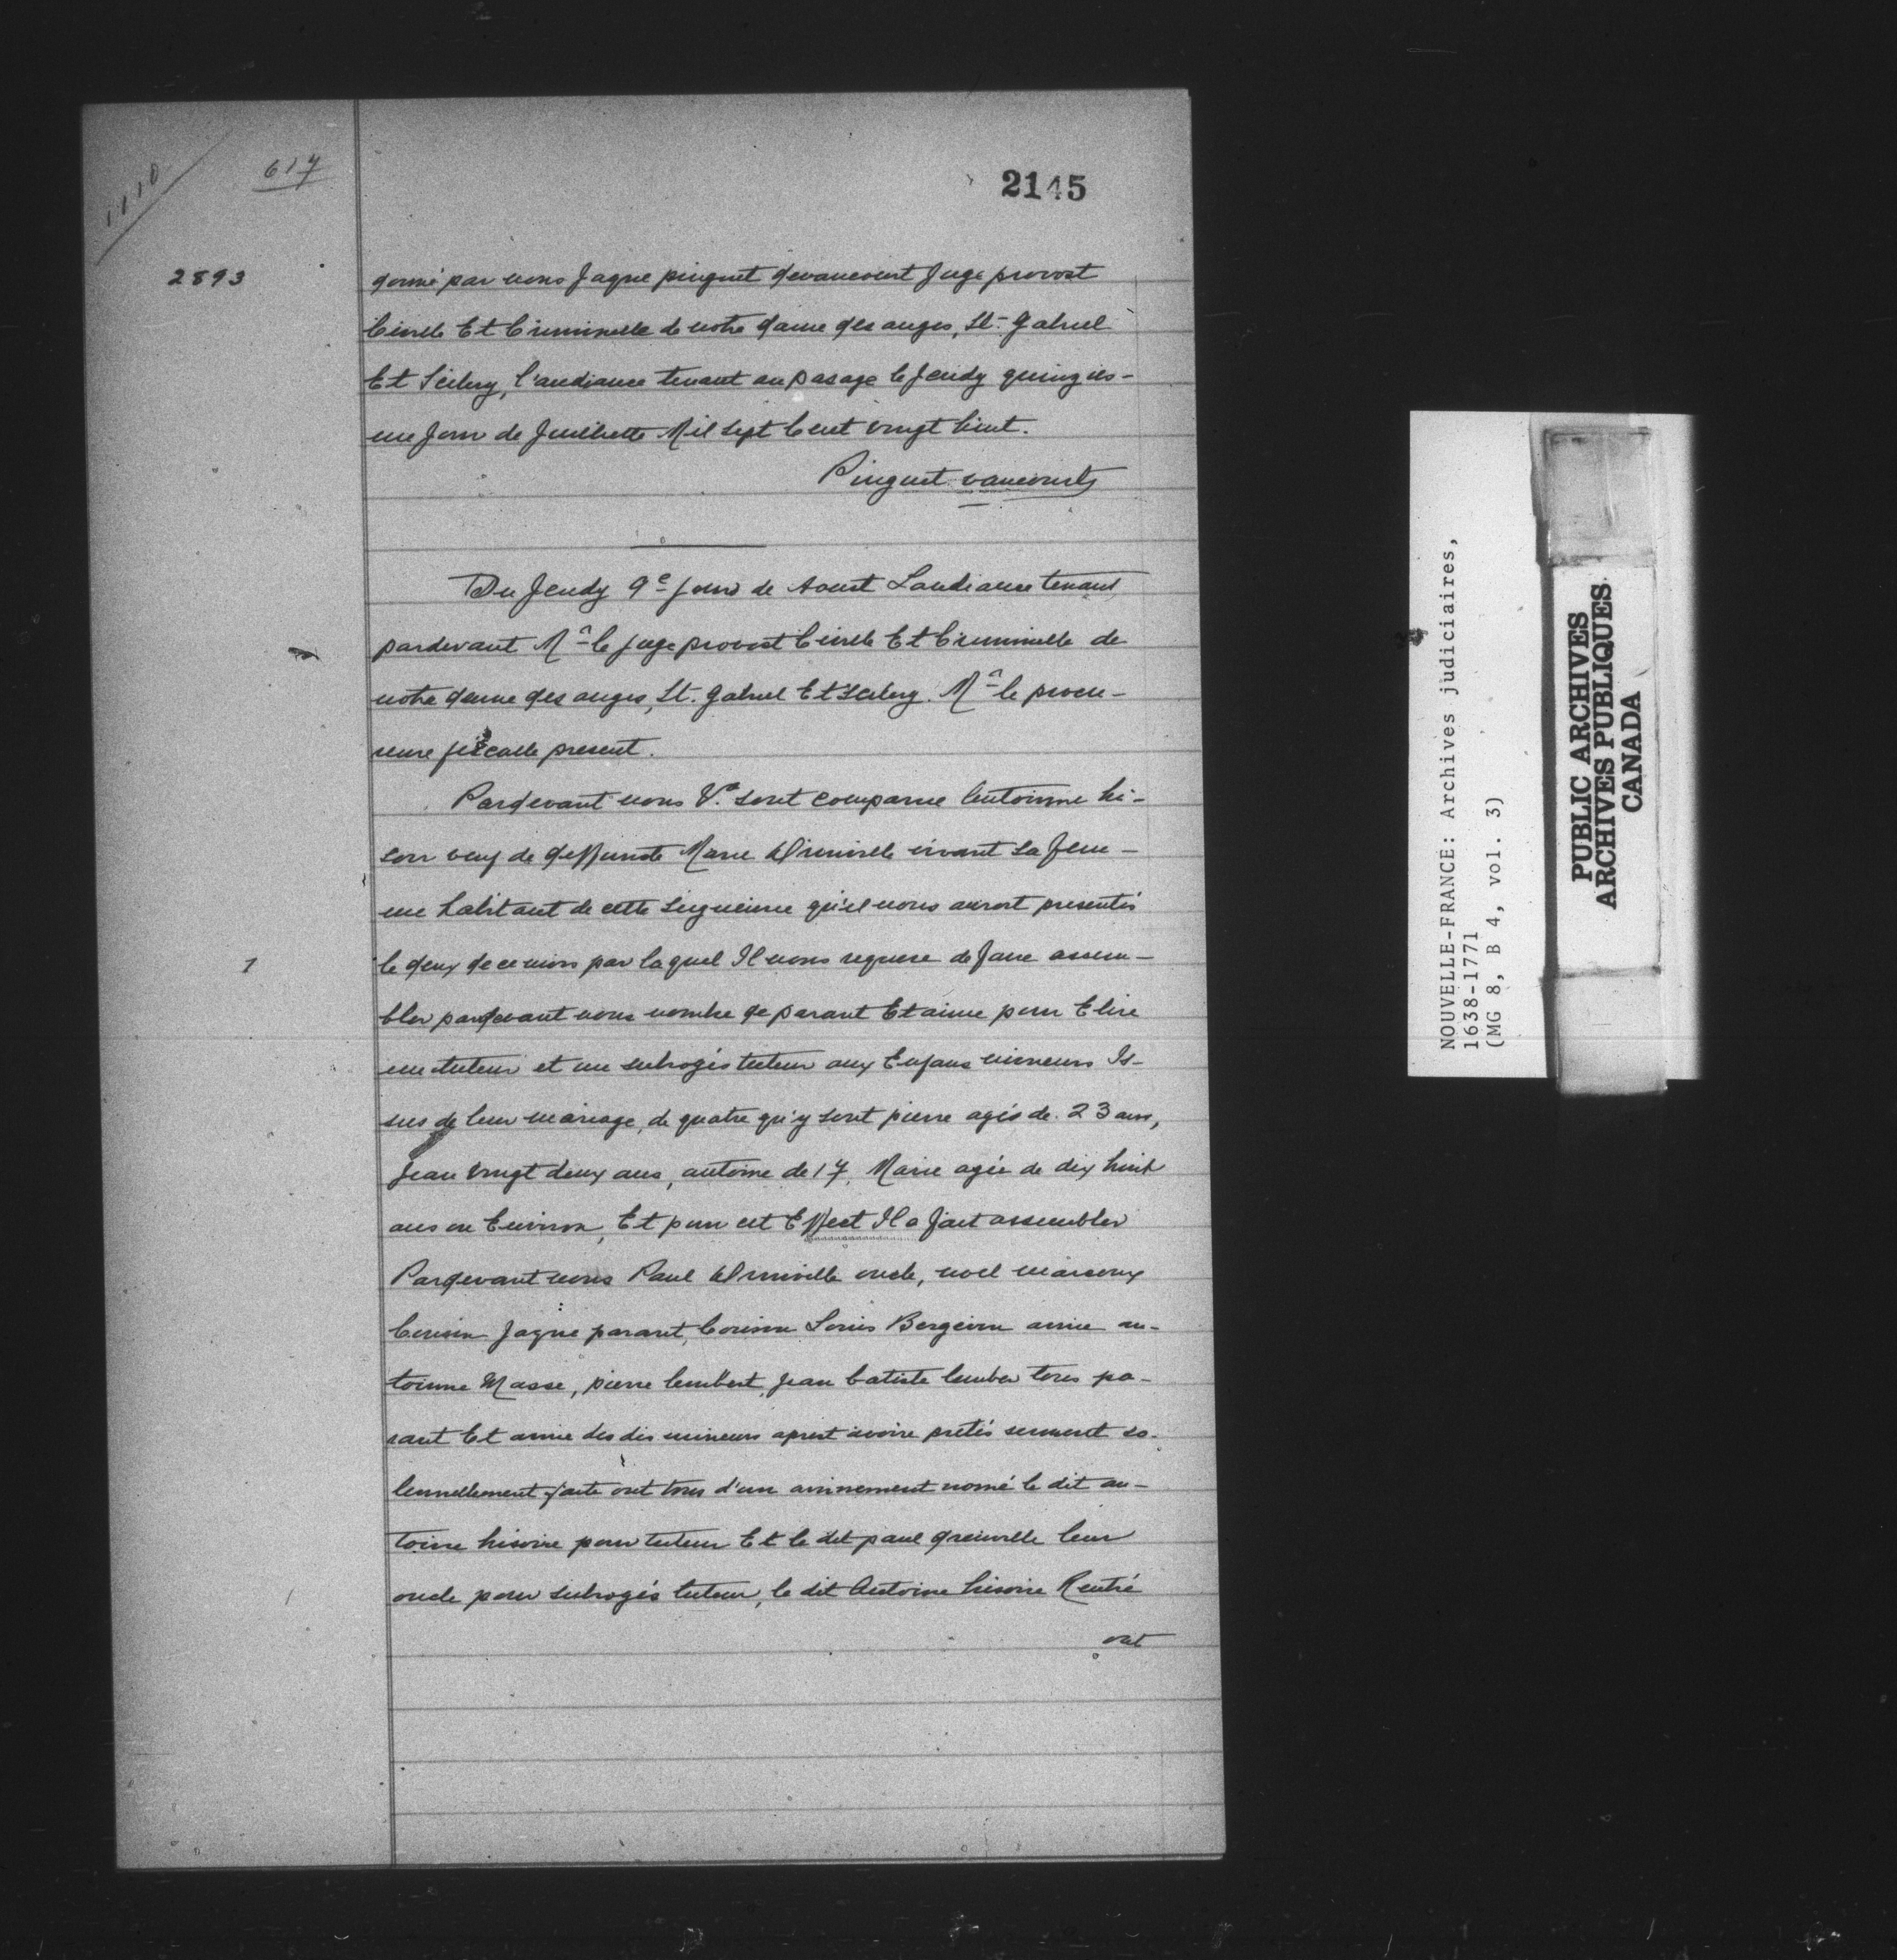 1110
617
2145
2893
donné par nous Jaque pinguet devancourt Juge provost
Civelle Et Criminelle de notre dame des anges, St. Gabriel
Et Scilery, l'audiance tenant au pasage le Jeudy quinzies-
me Jour de Juillette Mil sept Cent vingt huit.
Pinguet vaucourt
Du Jeudy 9e Jour de Aoust Laudiance tenant
pardevant Mr le juge provost Civelle Et Criminelle de
notre dame des anges, St. Gabriel Et Scilery. Mr le procu-
reure fiscalle present.
Pardevant nous sont comparue Antoinne hi-
son veuf de deffunte Marie Vivant sa fem-
me habitant de cette Seigneurie qu'il nous auroit presentés
1
le deux de ce mois par laquel Il nous requere de faire assem-
bler pardevant nous nombre de parant Et amie pour Elire
un tuteur et un subrogés tuteur aux Enfans mineurs Is-
sus de leur mariage, de quatre qu'y sont pierre agés de 23 ans,
Jean vingt deux ans, antoine de 17, Marie agée de dix huit
ans ou Environ, Et pour cet Effect Il a fait assembler
Pardevant nous Paul oncle, noel marcoux
Cousin Jaque parant, Cousin Louis Bergeron amie an-
toinne Masse, pierre lembert, Jean batiste lember tous pa-
rant Et amie des dis mineurs aprest avoire prétés serment so-
lennellement faite ont tous d'un nomé le dit an-
toine hisoire pour tuteur Et le dit paul dreinville leur
oncle pour subrogés tuteur, le dit Antoine hisoire Rentré
ont
NOUVELLE-FRANCE: Archives judiciaires,
1638-1771
(MG 8, B 4, vol. 3)
PUBLIC ARCHIVES
ARCHIVES PUBLIQUES
CANADA